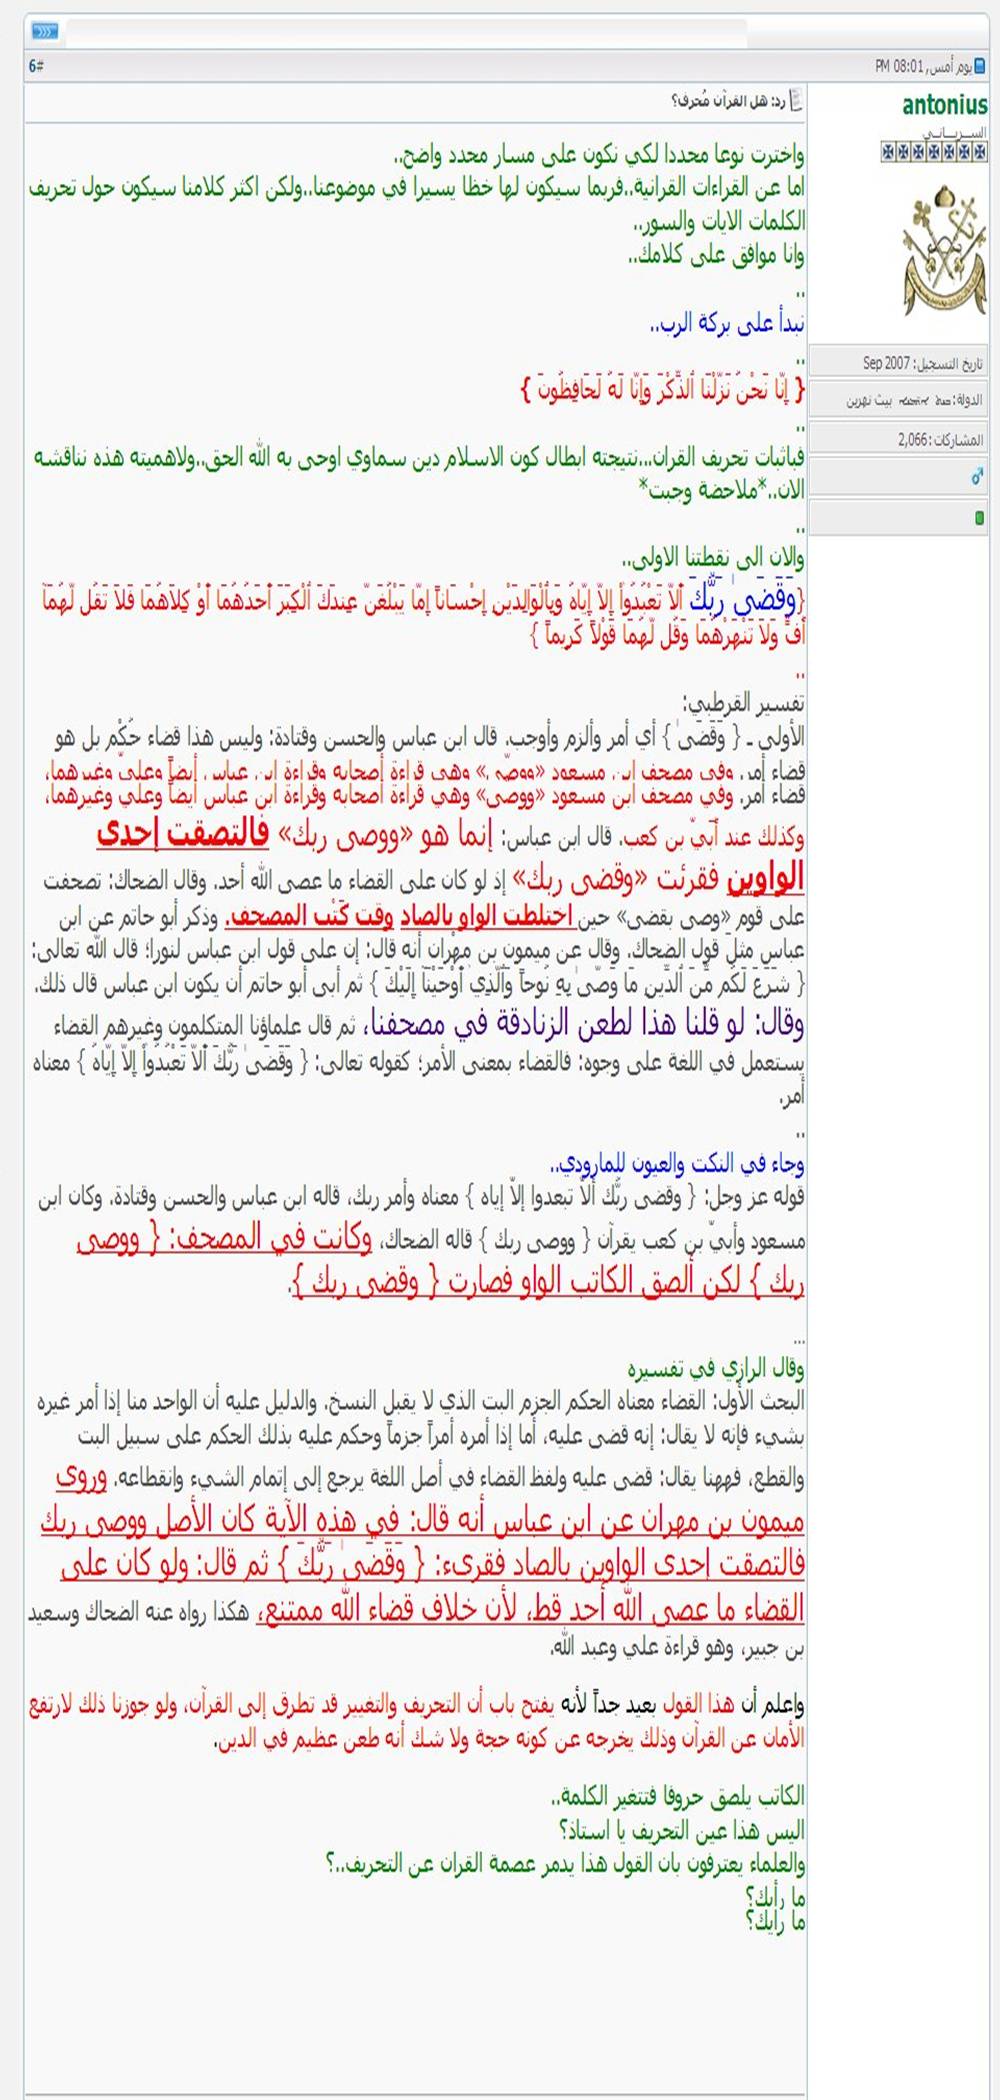 يوم أمس, 08:01 PM
#6
antonius
السـريـانـي
تاريخ التسجيل: Sep 2007
الدولة: بيث نهرين
المشاركات: 2,066
رد: هل القرآن مُحرف؟
واخترت نوعا محددا لكي نكون على مسار محدد واضح..
اما عن القراءات القرانية..فربما سيكون لها خظا يسيرا في موضوعنا..ولكن اكثر كلامنا سيكون حول تحريف
الكلمات الايات والسور..
وانا موافق على كلامك..
..
نبدأ على بركة الرب..
..
{ إِنَّا نَحْنُ نَزَّلْنَا ٱلذِّكْرَ وَإِنَّا لَهُ لَحَافِظُونَ }
..
فباثبات تحريف القران...نتيجته ابطال كون الاسلام دين سماوي اوحى به الله الحق..ولاهميته هذه نناقشه
الان..*ملاحضة وجبت*
..
والان الى نقطتنا الاولى..
{وَقَضَىٰ رَبُّكَ أَلاَّ تَعْبُدُوۤاْ إِلاَّ إِيَّاهُ وَبِٱلْوَالِدَيْنِ إِحْسَاناً إِمَّا يَبْلُغَنَّ عِندَكَ ٱلْكِبَرَ أَحَدُهُمَا أَوْ كِلاَهُمَا فَلاَ تَقُل لَّهُمَآ
أُفٍّ وَلاَ تَنْهَرْهُمَا وَقُل لَّهُمَا قَوْلاً كَرِيماً }
..
تفسير القرطبي:
الأولى ـ { وَقَضَىٰ } أي أمر وألزم وأوجب. قال ابن عباس والحسن وقتادة: وليس هذا قضاء حُكْم بل هو
قضاء أمر. وفي مصحف ابن مسعود «ووصّى» وهي قراءة أصحابه وقراءة ابن عباس أيضاً وعليّ وغيرهما،
قضاء أمر. وفي مصحف ابن مسعود «ووصّى» وهي قراءة أصحابه وقراءة ابن عباس أيضاً وعلي وغيرهما،
وكذلك عند أُبيّ بن كعب. قال ابن عباس: إنما هو «ووصى ربك» فالتصقت إحدى
الواوين فقرئت «وقضى ربك» إذ لو كان على القضاء ما عصى الله أحد. وقال الضحاك: تصحفت
على قوم «وصى بقضى» حين اختلطت الواو بالصاد وقت كَتْب المصحف. وذكر أبو حاتم عن ابن
عباس مثلَ قول الضحاك. وقال عن ميمون بن مِهْران أنه قال: إن على قول ابن عباس لنورا؛ قال الله تعالى:
{ شَرَعَ لَكُم مِّنَ ٱلدِّينِ مَا وَصَّىٰ بِهِ نُوحاً وَٱلَّذِيۤ أَوْحَيْنَآ إِلَيْكَ } ثم أبى أبو حاتم أن يكون ابن عباس قال ذلك.
وقال: لو قلنا هذا لطعن الزنادقة في مصحفنا، ثم قال علماؤنا المتكلمون وغيرهم القضاء
يستعمل في اللغة على وجوه: فالقضاء بمعنى الأمر؛ كقوله تعالى: { وَقَضَىٰ رَبُّكَ أَلاَّ تَعْبُدُوۤاْ إِلاَّ إِيَّاهُ } معناه
أمر.
..
وجاء في النكت والعيون للمارودي..
قوله عز وجل: { وقضى ربُّك ألاّ تبعدوا إلاّ إياه } معناه وأمر ربك، قاله ابن عباس والحسن وقتادة. وكان ابن
مسعود وأبيّ بن كعب يقرآن { ووصى ربك } قاله الضحاك، وكانت في المصحف: { ووصى
ربك } لكن ألصق الكاتب الواو فصارت { وقضى ربك }.
...
وقال الرازي في تفسيره
البحث الأول: القضاء معناه الحكم الجزم البت الذي لا يقبل النسخ. والدليل عليه أن الواحد منا إذا أمر غيره
بشيء فإنه لا يقال: إنه قضى عليه، أما إذا أمره أمراً جزماً وحكم عليه بذلك الحكم على سبيل البت
والقطع، فههنا يقال: قضى عليه ولفظ القضاء في أصل اللغة يرجع إلى إتمام الشيء وانقطاعه. وروى
ميمون بن مهران عن ابن عباس أنه قال: في هذه الآية كان الأصل ووصى ربك
فالتصقت إحدى الواوين بالصاد فقرىء: { وَقَضَىٰ رَبُّكَ } ثم قال: ولو كان على
القضاء ما عصى الله أحد قط، لأن خلاف قضاء الله ممتنع، هكذا رواه عنه الضحاك وسعيد
بن جبير، وهو قراءة علي وعبد الله.
واعلم أن هذا القول بعيد جداً لأنه يفتح باب أن التحريف والتغيير قد تطرق إلى القرآن، ولو جوزنا ذلك لارتفع
الأمان عن القرآن وذلك يخرجه عن كونه حجة ولا شك أنه طعن عظيم في الدين.
الكاتب يلصق حروفا فتتغير الكلمة..
اليس هذا عين التحريف يا استاذ؟
والعلماء يعترفون بان القول هذا يدمر عصمة القران عن التحريف..؟
ما رأيك؟
ما رأيك؟